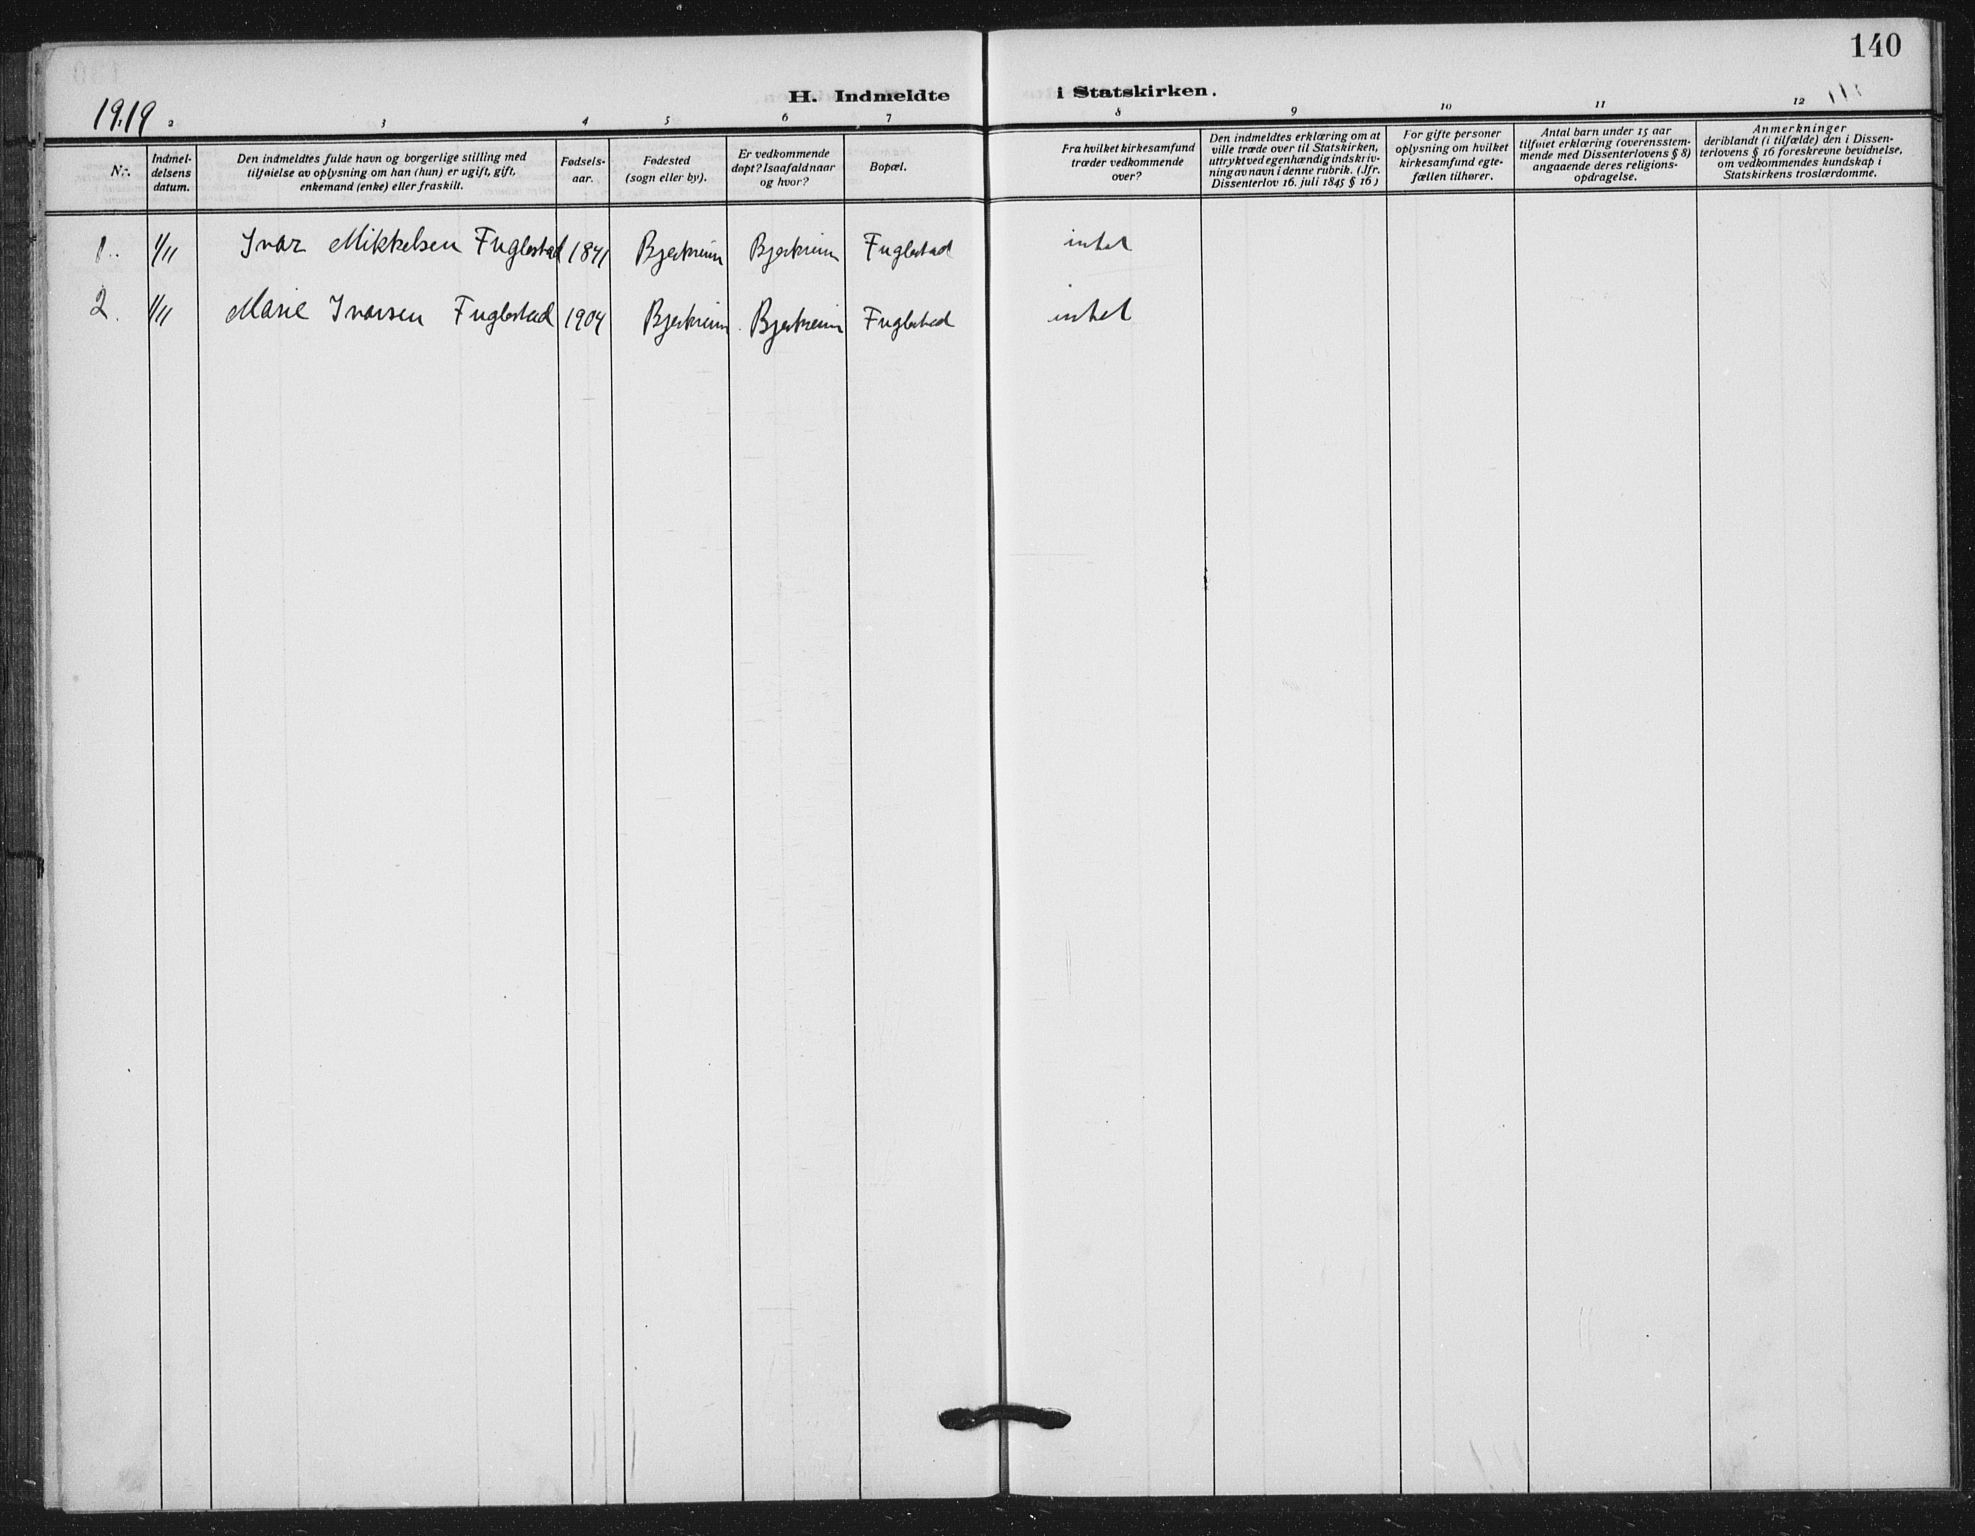 140
H. Indmeldte i Statskirken.
1919
2 3 4 5 6 7 8 9 10 11 12
Nr.
Indmel-
delsens
datum.
Den indmeldtes fulde havn og borgerlige stilling med
tilføielse av oplysning om han (hun) er ugift, gift,
enkemand (enke) eller fraskilt.
Fødsels-
aar.
Fødested
(sogn eller by).
Er vedkommende
døpt? Isaafald naar
og hvor?
Bopæl.
Fra hvilket kirkesamfund
træder vedkommende
over?
Den indmeldtes erklæring om at
ville træde over til Statskirken,
uttrykt ved egenhændig indskriv-
ning av navn i denne rubrik. (Jfr.
Dissenterlov 16. juli 1845 § 16)
For gifte personer
oplysning om hvilket
kirkesamfund egte-
fællen tilhører.
Antal barn under 15 aar
tilføiet erklæring (overensstem-
mende med Dissenterlovens § 8)
angaaende deres religions-
opdragelse.
Anmerkninger
deriblandt (i tilfælde) den i Dissen-
terlovens § 16 foreskrevne bevidnelse,
om vedkommendes kundskap i
Statskirkens troslærdomme.
1. 1/11 Ivar Mikkelsen Fuglestad 1841 Bjerkreim Bjerkreim Fuglestad intet
2. 1/11 Marie Ivarsen Fuglestad 1904 Bjerkreim Bjerkreim Fuglestad intet